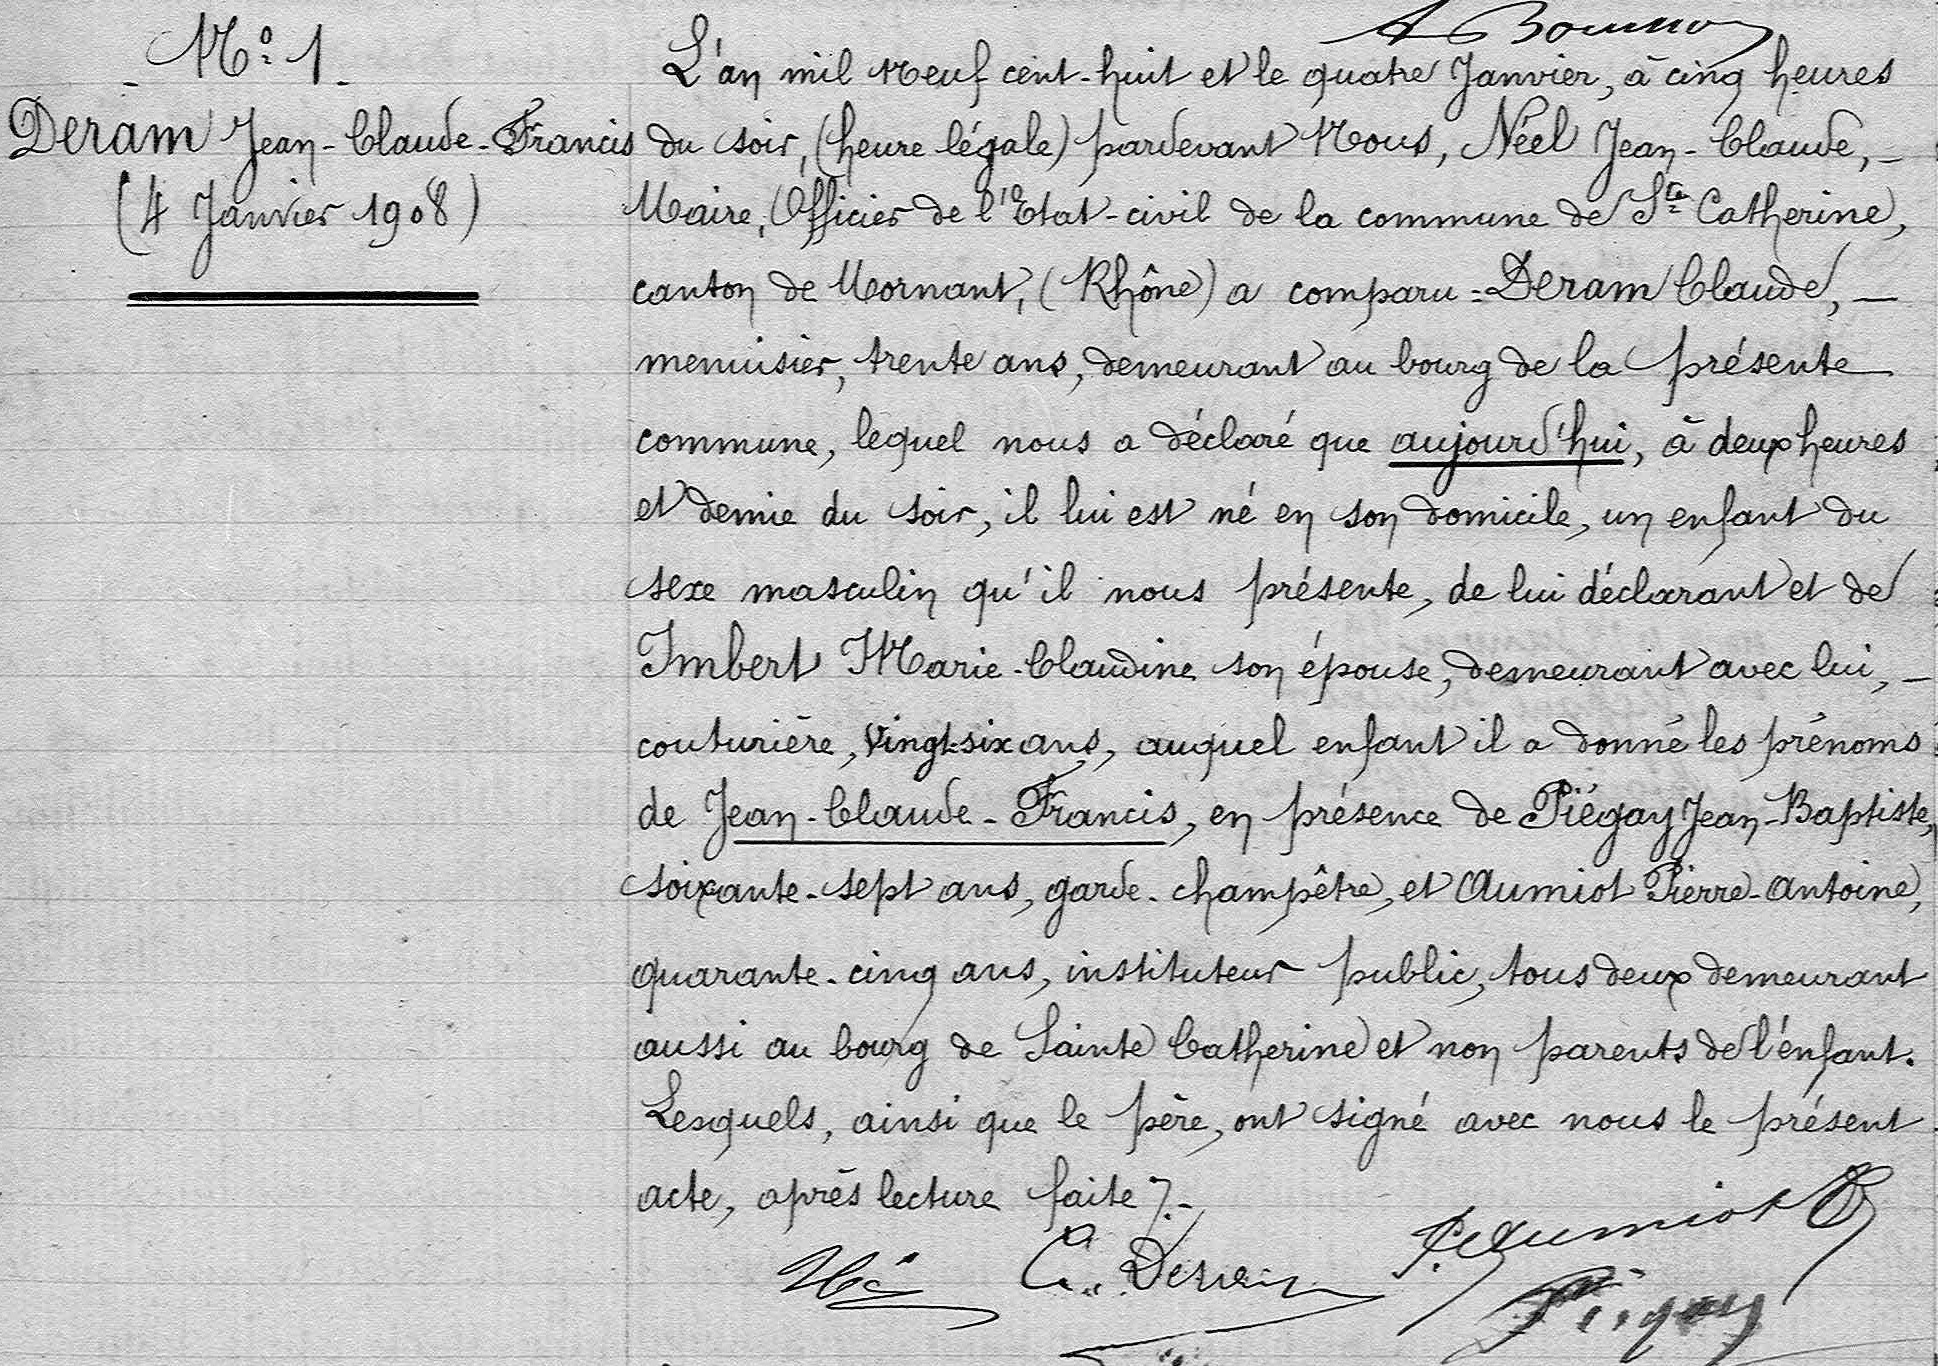 N.º 1
Deram Jean-Claude-Francis
(4 Janvier 1908)
L'an mil neuf cent-huit et le quatre Janvier, à cinq heures
du soir, (heure légale) pardevant Nous, Néel Jean-Claude,
Maire, Officier de l'Etat-civil de la commune de Ste Catherine,
canton de Mornant, (Rhône) a comparu = Deram Claude,
menuisier, trente ans, demeurant au bourg de la présente
commune, lequel nous a déclaré que aujourd'hui, à deux heures
et demie du soir, il lui est né en son domicile, un enfant du
sexe masculin qu'il nous présente, de lui déclarant et de
Imbert Marie-Claudine son épouse, demeurant avec lui,
couturière, vingt-six ans, auquel enfant il a donné les prénoms
de Jean-Claude-Francis, en présence de Piégay Jean-Baptiste,
soixante-sept ans, garde-champêtre, et Aumiot Pierre-Antoine,
quarante-cinq ans, instituteur public, tous deux demeurant
aussi au bourg de Sainte Catherine et non parents de l'enfant.
Lesquels, ainsi que le père, ont signé avec nous le présent
acte, après lecture faite.
C. Deram
P. Aumiot
Piégay